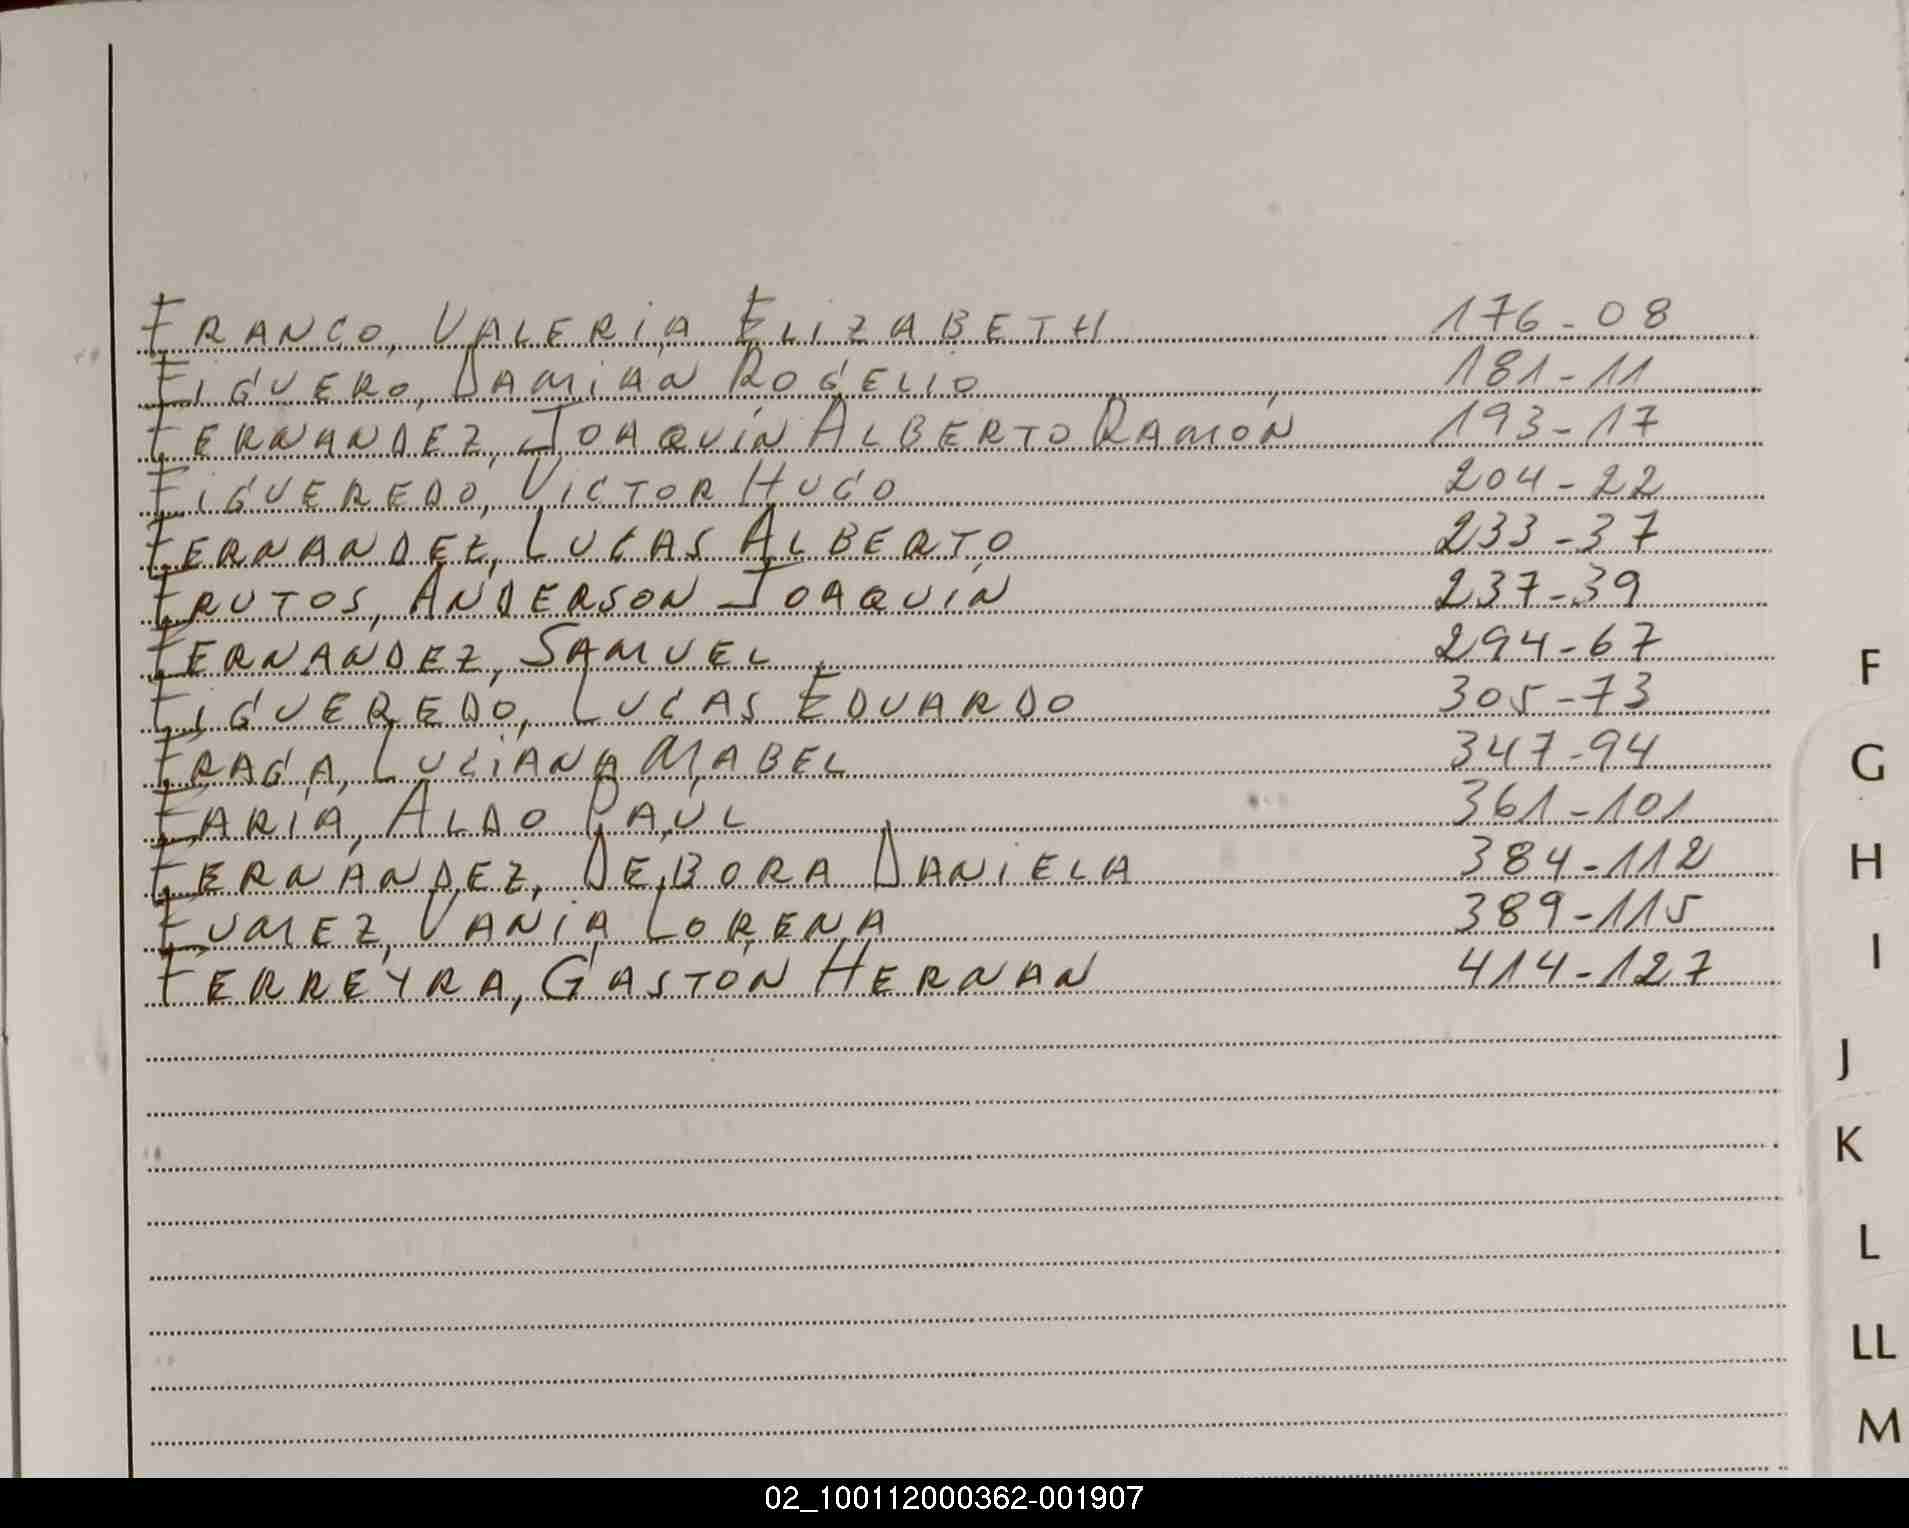 FRANCO, VALERIA ELIZABETH 176-08
FIGUERO, DAMIAN ROGELIO 181-11
FERNANDEZ, JOAQUÍN ALBERTO RAMÓN 193-17
FIGUEREDO, VICTOR HUGO 204-22
FERNANDEZ, LUCAS ALBERTO 233-37
FRUTOS, ANDERSON JOAQUÍN 237-39
FERNANDEZ, SAMUEL 294-67
FIGUEREDO, LUCAS EDUARDO 305-73
FRAGA, LUCIANA MABEL 347-94
FARIA, ALDO PAUL 361-101
FERNANDEZ, DEBORA DANIELA 384-112
FUMEZ, VANIA LORENA 389-115
FERREYRA, GASTON HERNAN 414-127
F
G
H
I
J
K
L
LL
M
02_100112000362-001907